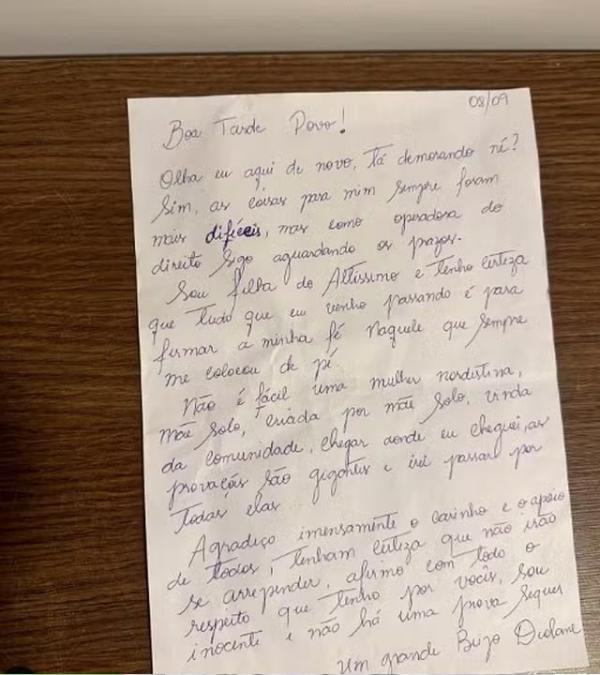 08/09
Boa Tarde Povo!
Olha eu aqui de novo, Tá demorando né?
Sim, as coisas para mim sempre foram
mais difíceis, mas como operadora do
direito sigo aguardando os prazos.
Sou filha do Altíssimo e tenho certeza
que tudo que eu venho passando é para
firmar a minha fé naquele que sempre
me colocou de pé.
Não é fácil uma mulher nordestina,
mãe solo, criada por mãe solo, vinda
da comunidade, chegar aonde eu cheguei, as
provações são gigantes e irei passar por
todas elas
Agradeço imensamente o carinho e o apoio
de todos, tenham certeza que não irão
se arrepender, afirmo com todo o
respeito que tenho por vocês, sou
inocente e não há uma prova sequer
Um grande Beijo Deolane